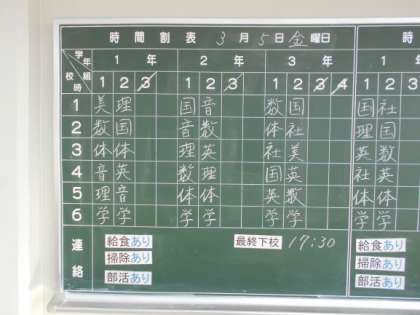 時間割表 3月5日金曜日 時
学年 組 校時 1年 2年 3年 1
1 2 3 1 2 3 1 2 3 4 1 2
1 美 理 国 音 数 国 国 社
2 数 国 音 数 体 社 理 国
3 体 体 理 英 社 美 英 数
4 音 英 数 理 国 英 社 英
5 理 音 体 体 英 数 体 体
6 学 学 学 学 学 学 学 学
連絡 給食あり 最終下校 17:30 給食あり
掃除あり 掃除あり
部活あり 部活あり